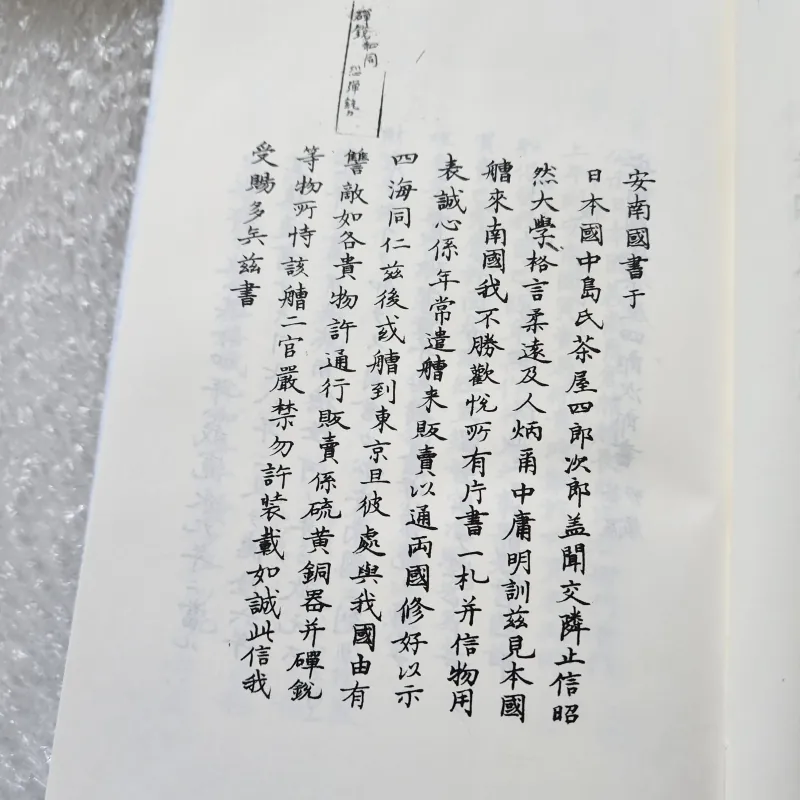 安南國書于
日本國中島氏茶屋四郎次郎盖聞交隣止信昭
然大學格言柔遠及人炳甬中庸明訓兹見本國
艚來南國我不勝歡悅所有片書一札并信物用
表誠心係年常遣艚来販賣以通両國修好以示
四海同仁兹後或艚到東京且彼處與我國由有
讐敵如各貴物許通行販賣係硫黄銅器并磾銳
等物所恃該艚二官嚴禁勿許裝載如誠此信我
受賜多矣兹書